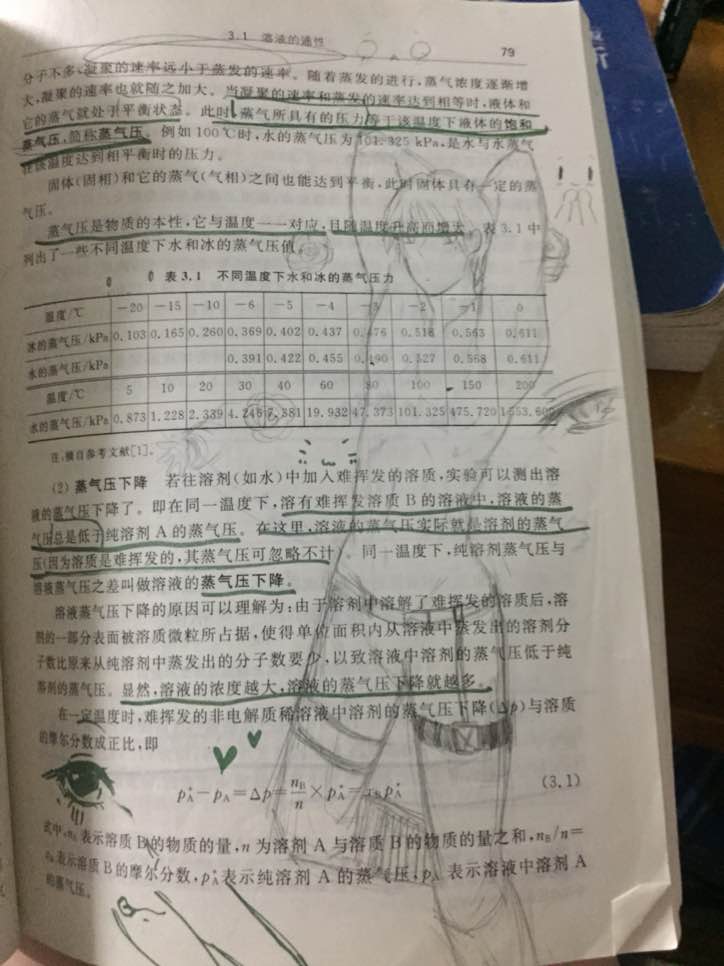 3.1 溶液的通性 79
分子不多,凝聚的速率远小于蒸发的速率。随着蒸发的进行,蒸气浓度逐渐增
大,凝聚的速率也就随之加大。当凝聚的速率和蒸发的速率达到相等时,液体和
它的蒸气就处于平衡状态。此时,蒸气所具有的压力等于该温度下液体的饱和
蒸气压,简称蒸气压。例如100℃时,水的蒸气压为101.325 kPa,是水与水蒸气
在该温度达到相平衡时的压力。
固体(固相)和它的蒸气(气相)之间也能达到平衡,此时固体具有一定的蒸
气压。
蒸气压是物质的本性,它与温度一一对应,且随温度升高而增大。表3.1中
列出了一些不同温度下水和冰的蒸气压值。
表3.1 不同温度下水和冰的蒸气压力
温度/℃ −20 −15 −10 −6 −5 −4 −3 −2 −1 0
冰的蒸气压/kPa 0.103 0.165 0.260 0.369 0.402 0.437 0.476 0.518 0.563 0.611
水的蒸气压/kPa 0.391 0.422 0.455 0.490 0.527 0.568 0.611
温度/℃ 5 10 20 30 40 60 80 100 150 200
水的蒸气压/kPa 0.873 1.228 2.339 4.246 7.381 19.932 47.373 101.325 475.720 1553.600
注:摘自参考文献[1]。
(2) 蒸气压下降 若往溶剂(如水)中加入难挥发的溶质,实验可以测出溶
液的蒸气压下降了。即在同一温度下,溶有难挥发溶质B的溶液中,溶液的蒸
气压总是低于纯溶剂A的蒸气压。在这里,溶液的蒸气压实际就是溶剂的蒸气
压(因为溶质是难挥发的,其蒸气压可忽略不计)。同一温度下,纯溶剂蒸气压与
溶液蒸气压之差叫做溶液的蒸气压下降。
溶液蒸气压下降的原因可以理解为:由于溶剂中溶解了难挥发的溶质后,溶
剂的一部分表面被溶质微粒所占据,使得单位面积内从溶液中蒸发出的溶剂分
子数比原来从纯溶剂中蒸发出的分子数要少,以致溶液中溶剂的蒸气压低于纯
溶剂的蒸气压。显然,溶液的浓度越大,溶液的蒸气压下降就越多。
在一定温度时,难挥发的非电解质稀溶液中溶剂的蒸气压下降(Δp)与溶质
的摩尔分数成正比,即
p*A−pA=Δp=nB/n×p*A=xBp*A (3.1)
式中,nB表示溶质B的物质的量,n为溶剂A与溶质B的物质的量之和,nB/n=
xB表示溶质B的摩尔分数,p*A表示纯溶剂A的蒸气压,pA表示溶液中溶剂A
的蒸气压。